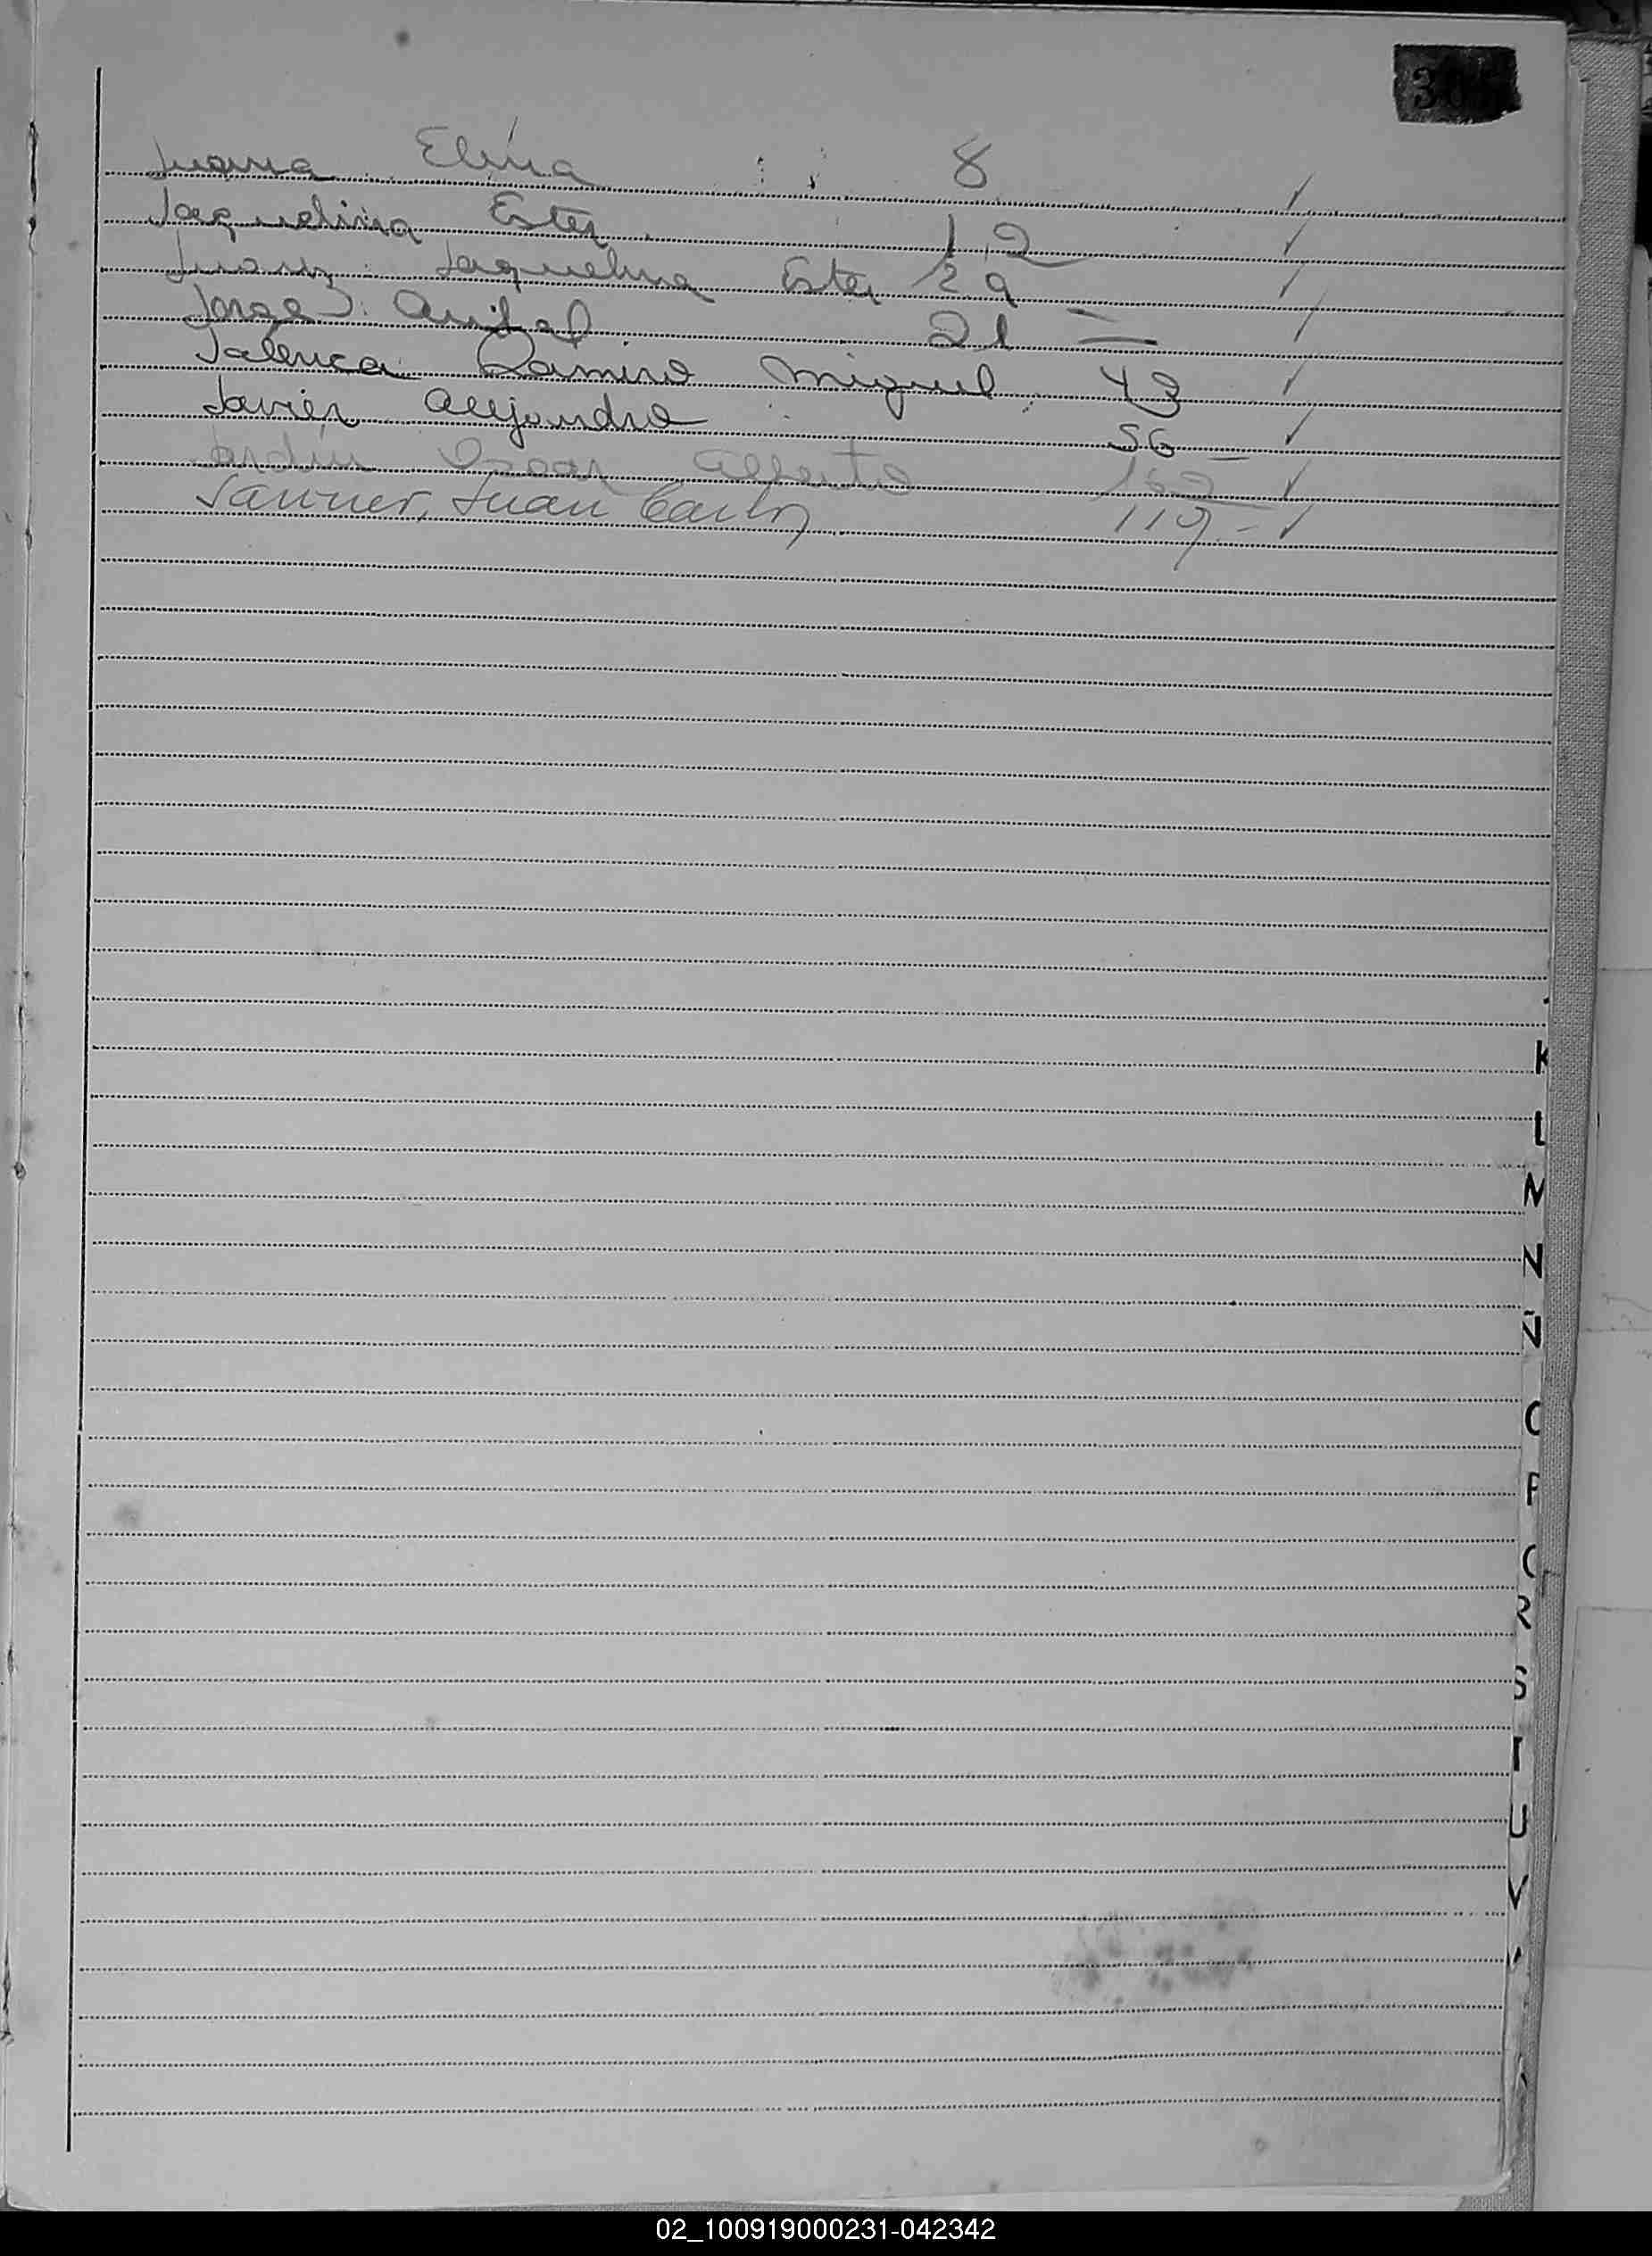 Juana Elina 8 ✓
Jaquelina Ester 12 ✓
Juarez Jaquelina Ester 29 ✓
Jorge Anibal 21 — ✓
Ramiro Miguel 43 ✓
Javier Alejandro 56 — ✓
Jardín Oscar Alberto ✓
Juan Carlos 119 - ✓
K
L
M
N
Ñ
O
P
Q
R
S
T
U
V
02_100919000231-042342